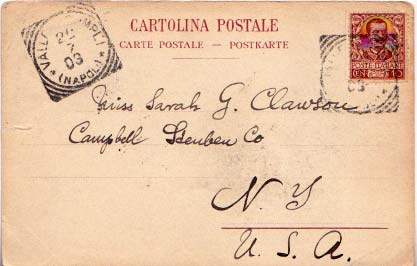 CARTOLINA POSTALE
CARTE POSTALE - POSTKARTE
03
(NAPOLI)
POSTE ITALIANE
CENT 10
03
Miss Sarah G. Clawson
Campbell Steuben Co
N. Y
U. S. A.